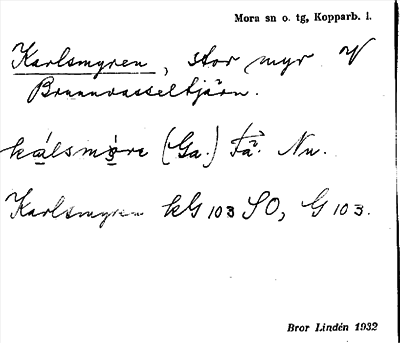 Mora sn o. tg, Kopparb. l.
Karlsmyren, stor myr V
Brunnvasseltjärn.
kálsmöre (Ga.) Fä². Nu.
Karlsmyren kG 103 SO, G 103.
Bror Lindén 1932